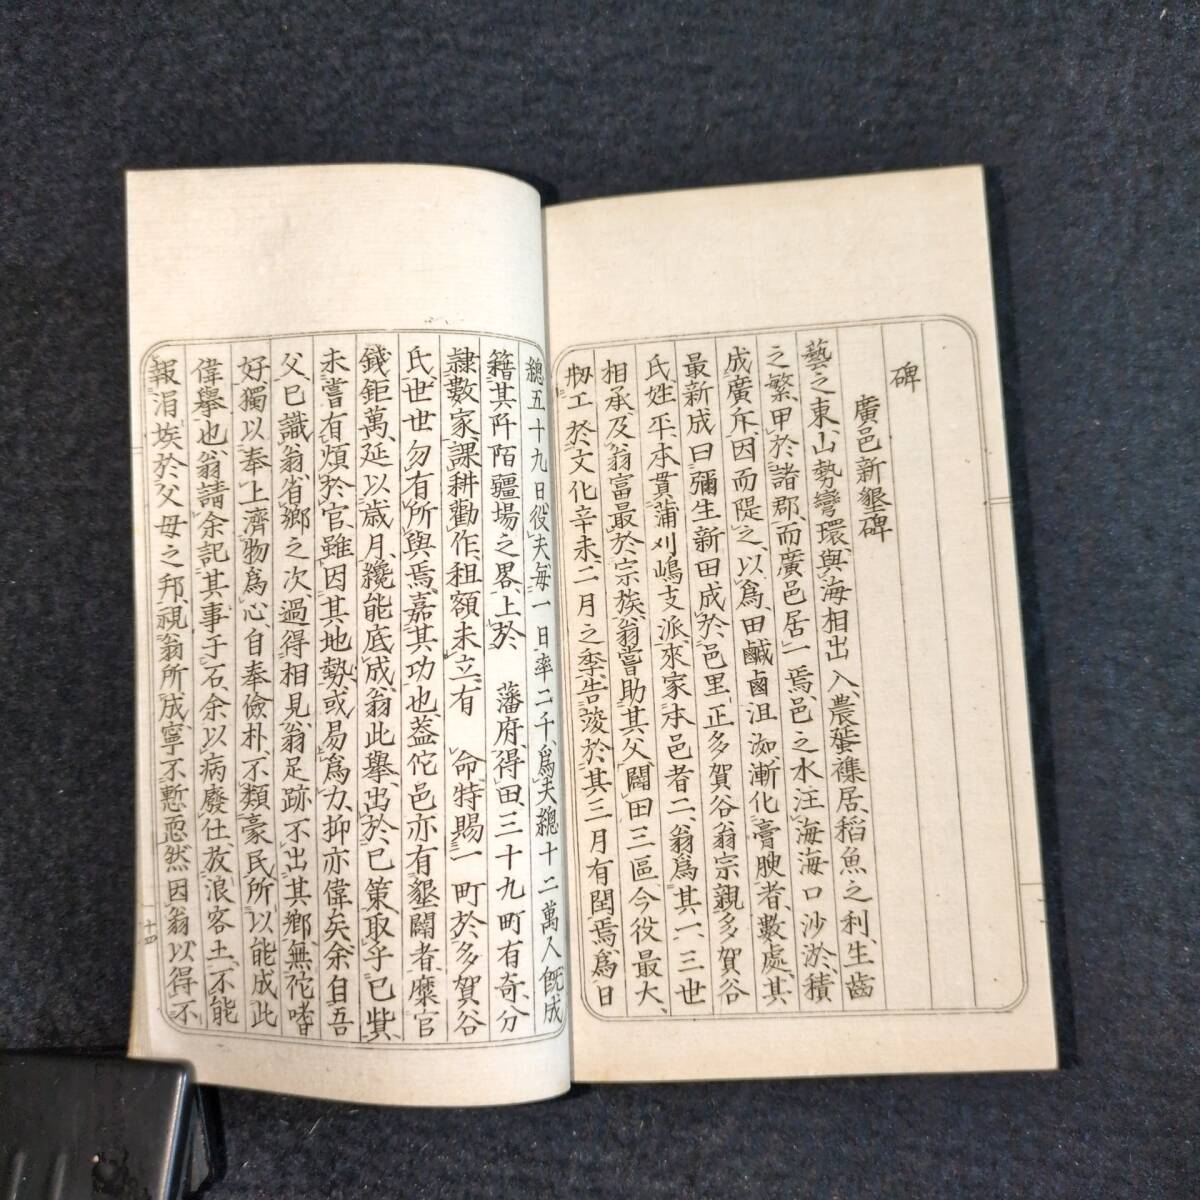 碑
廣邑新墾碑
藝之東、山勢彎環、與海相出入、農蜑襍居、稻魚之利、生齒
之繁、甲於諸郡、而廣邑居一焉、邑之水注海、海口沙淤、積
成廣斥、因而隄之、以爲田、鹹鹵沮洳、漸化膏腴者、數處、其
最新成曰彌生新田、成於邑里正多賀谷翁、宗親多賀谷
氏、姓平、本貫蒲刈嶋、支派來家本邑者二、翁爲其一、三世
相承、及翁富最於宗族、翁嘗助其父闢田三區、今役最大、
刱工於文化辛未、二月之季、告竣於其三月有閏焉、爲日
總五十九日、役夫毎一日率二千、爲夫總十二萬人、旣成
籍其阡陌疆場之畧、上於 藩府、得田三十九町有奇、分
隷數家、課耕勸作、租額未立、有 命、特賜一町於多賀谷
氏、世世勿有所與焉、嘉其功也、葢佗邑亦有墾闢者、糜官
錢鉅萬、延以歳月、纔能底成、翁此擧、出於己策、取乎己貲、
未嘗有煩於官、雖因其地勢或易爲力、抑亦偉矣、余自吾
父已識翁、省郷之次、過得相見、翁足跡不出其郷、無佗嗜
好、獨以奉上濟物爲心、自奉儉朴、不類豪民、所以能成此
偉擧也、翁請余記其事于石、余以病廢仕、放浪客土、不能
報涓埃於父母之邦、視翁所成、寧不慙恧、然因翁以得不
十四